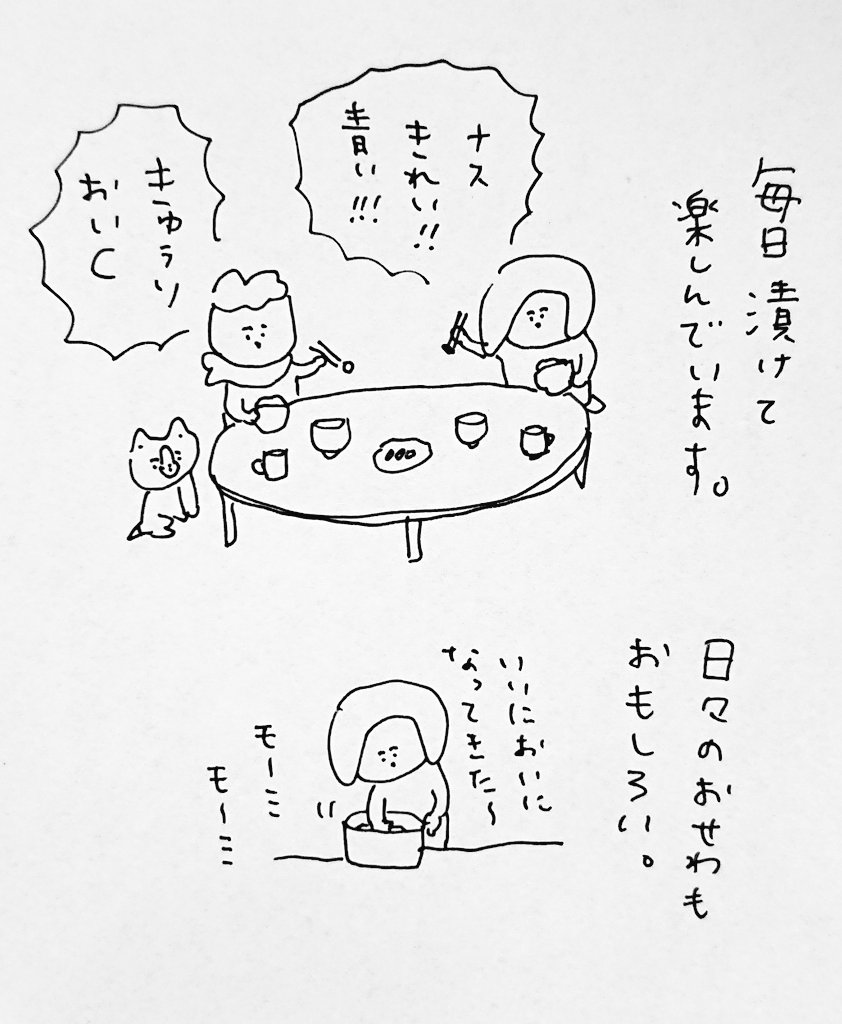 毎日漬けて
楽しんでいます。
ナス
きれい!!
青い!!!
きゅうり
おいC
日々のおせわも
おもしろい。
いいにおいに
なってきた〜
モーミミ
モーミミ